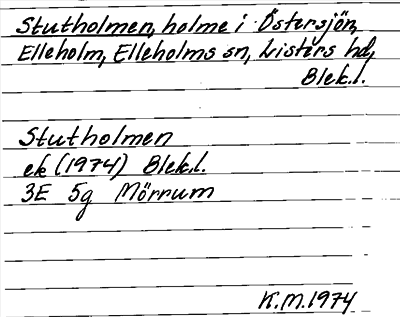 Stutholmen, holme i Östersjön,
Elleholm, Elleholms sn, Listers hd,
Blek.l.
Stutholmen
ek (1974) Blek.l.
3E 5g Mörrum
K.M. 1974